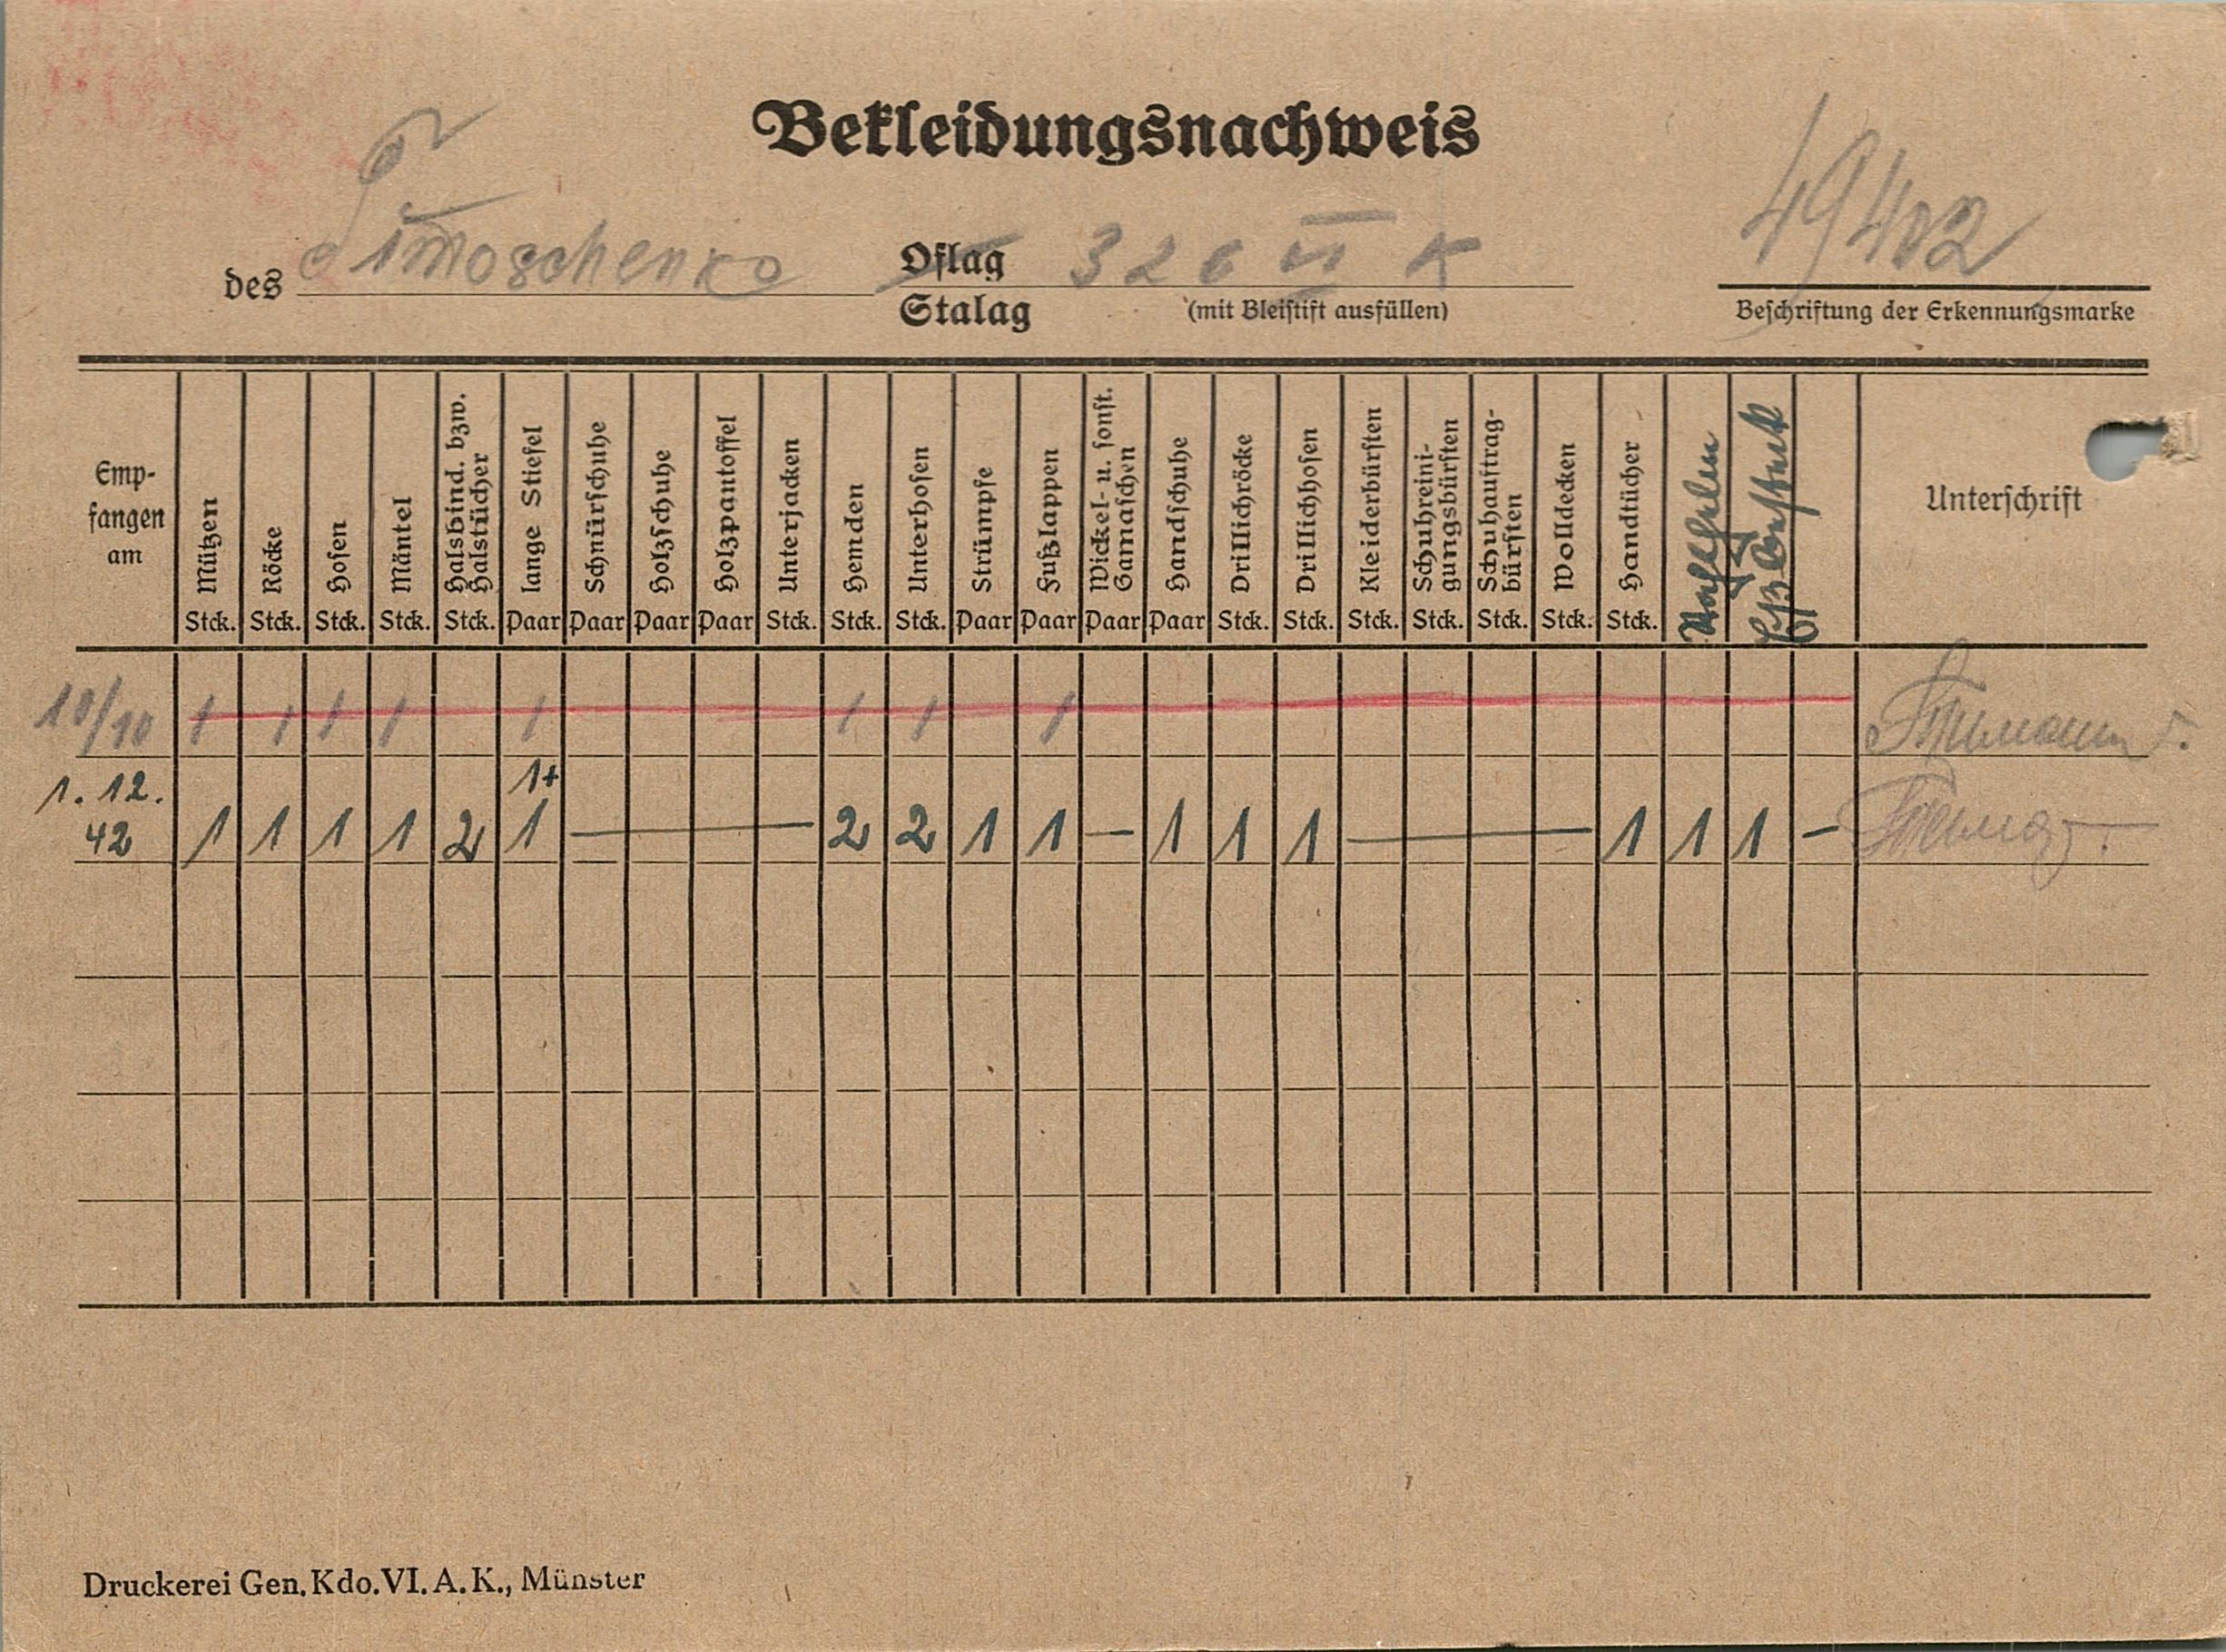 Bekleidungsnachweis
des Timoschenko Oflag 326 VI K 49402
Stalag (mit Bleistift ausfüllen) Beschriftung der Erkennungsmarke
Empfangen am
Mützen Stck.
Röcke Stck.
Hosen Stck.
Mäntel Stck.
Halsbind. bzw. Halstücher Stck.
lange Stiefel Paar
Schnürschuhe Paar
Holzschuhe Paar
Holzpantoffel Paar
Unterjacken Stck.
Hemden Stck.
Unterhosen Stck.
Strümpfe Paar
Fußlappen Paar
Wickel- u. sonst. Gamaschen Paar
Handschuhe Paar
Drillichröcke Stck.
Drillichhosen Stck.
Kleiderbürsten Stck.
Schuhreinigungsbürsten Stck.
Schuhauftragbürsten Stck.
Wolldecken Stck.
Handtücher Stck.
Unterschrift
10/10 1 1 1 1 1 1 1 1
1.12.42 1 1 1 1 2 1+1 — 2 2 1 1 — 1 1 1 — 1 1 1 —
Druckerei Gen. Kdo. VI. A. K., Münster